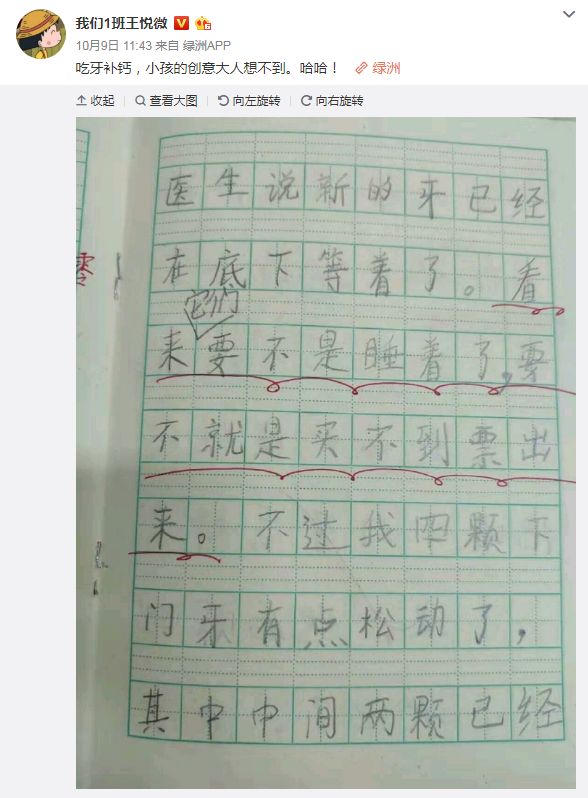 我们1班王悦微
10月9日 11:43 来自 绿洲APP
吃牙补钙，小孩的创意大人想不到。哈哈！ 绿洲
收起 查看大图 向左旋转 向右旋转
医生说新的牙已经
在底下等着了。看
它们
来要不是睡着了，要
不就是买不到票出
来。不过我四颗下
门牙有点松动了，
其中中间两颗已经